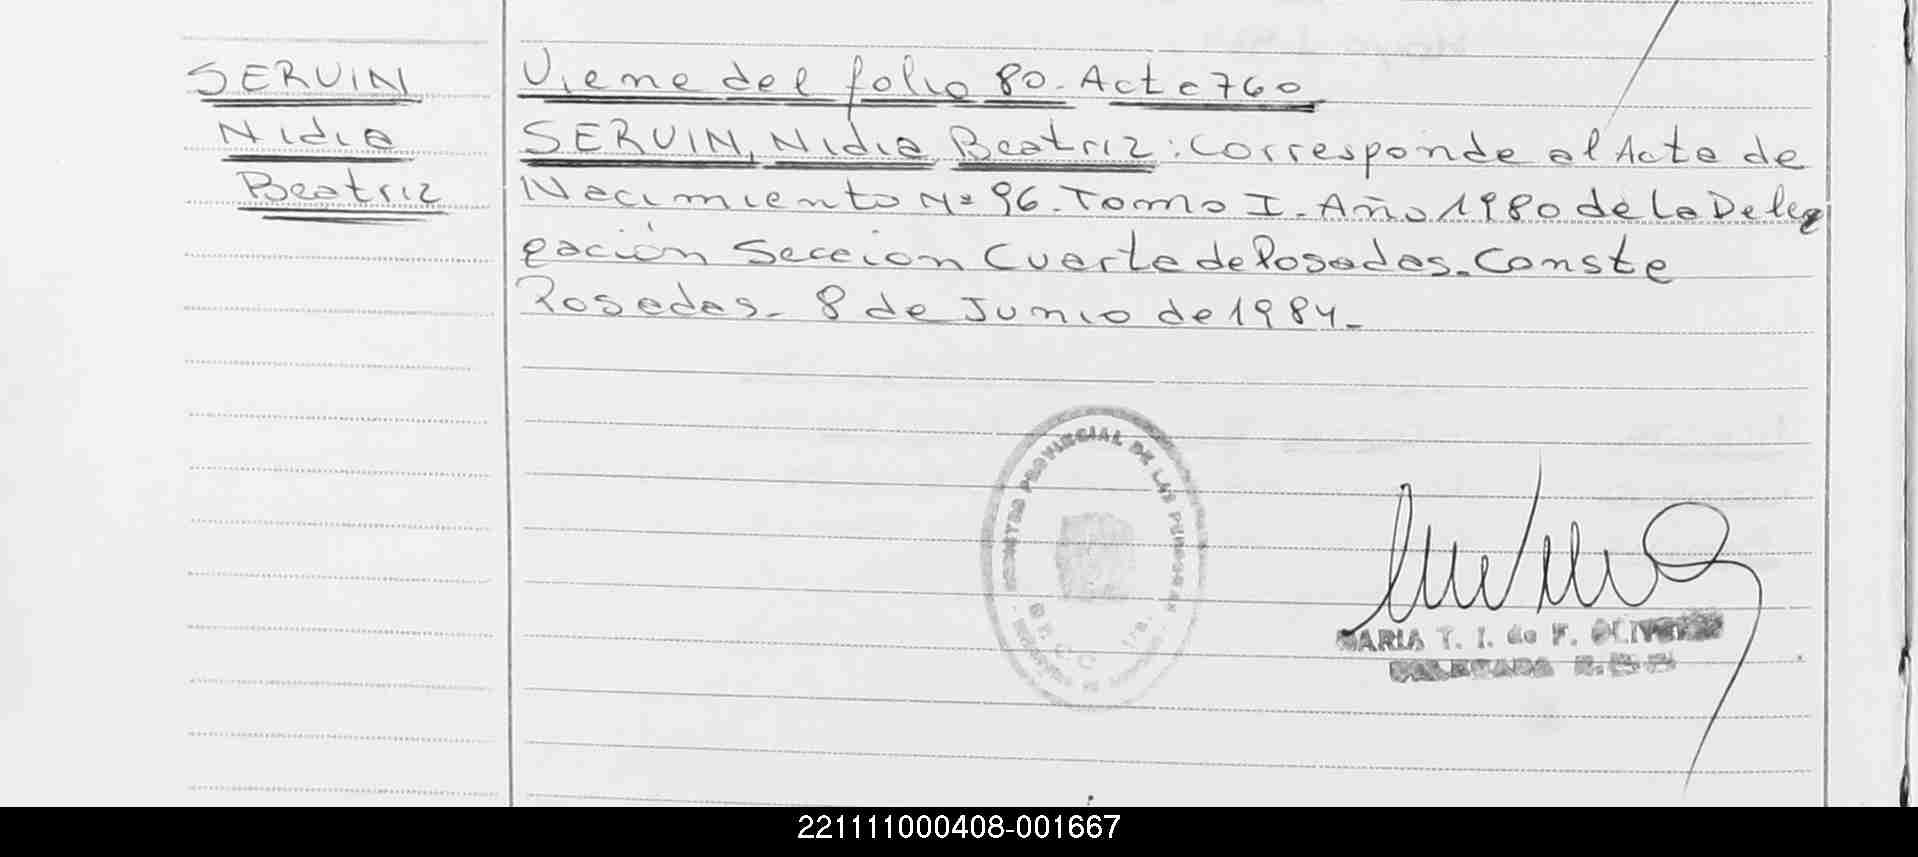 SERVIN
Nidia
Beatriz
Viene del folio 80. Acta 760
SERVIN, Nidia Beatriz: Corresponde al Acta de
Nacimiento Nº 96. Tomo I. Año 1980 de la Dele
gación Seccion Cuarta de Posadas. Conste
Posadas. 8 de Junio de 1984.
PROVINCIAL DE LAS PERSONAS
MARIA T. I. de F.
DELEGADA
221111000408-001667